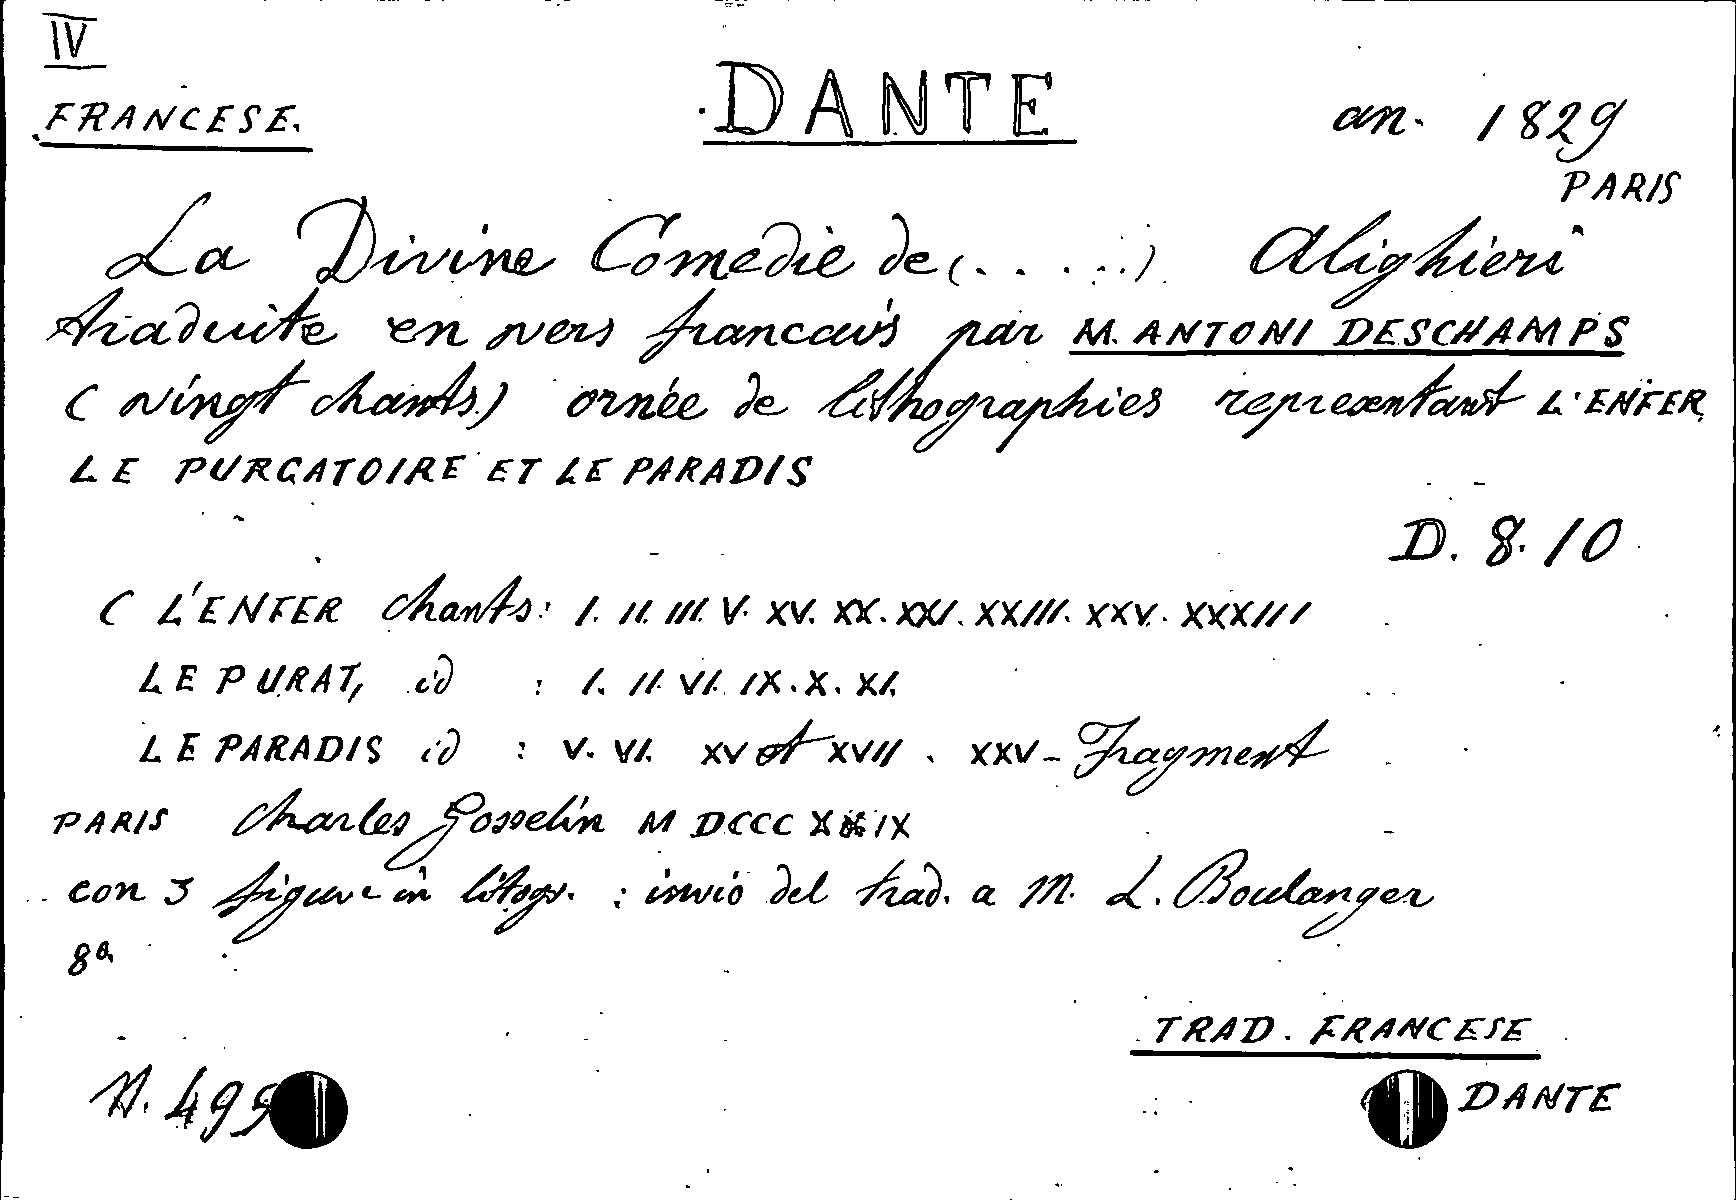 IV
FRANCESE.
DANTE
an. 1829
PARIS
La Divine Comedie de (.....) Alighieri
traduite en vers francais par M. ANTONI DESCHAMPS
(vingt chants) ornée de lithographies representant L'ENFER
LE PURGATOIRE ET LE PARADIS
D. 8. 10
( L'ENFER chants: I. II. III. V. XV. XX. XXI. XXIII. XXV. XXXIII
LE PURAT, id : I. II. VI. IX. X. XI.
LE PARADIS id : V. VI. XV et XVII. XXV - Fragment
PARIS Charles Gosselin MDCCCXXIX
con 3 figure in litogr. : invio del trad. a M. L. Boulanger
8º
TRAD. FRANCESE
N. 495
DANTE